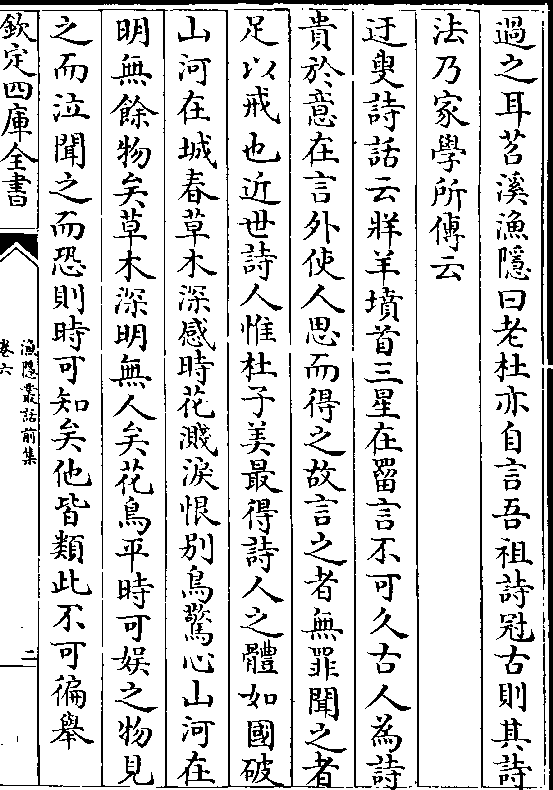 過之耳苕溪漁隱曰老杜亦自言吾祖詩冠古則其詩
法乃家學所傳云
迂叟詩話云牂羊墳首三星在罶言不可久古人為詩
貴於意在言外使人思而得之故言之者無罪聞之者
足以戒也近世詩人惟杜子美最得詩人之體如國破
山河在城春草木深感時花濺淚恨别鳥驚心山河在
明無餘物矣草木深明無人矣花鳥平時可娛之物見
之而泣聞之而恐則時可知矣他皆類此不可徧舉
欽定四庫全書
漁隱叢話前集
卷六
二